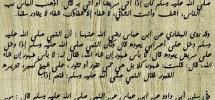 صلى الله عليه وسلم كان إذا أتى مريضا أو أتي به قال: أذهب الباس رب
الناس، اشف وأنت الشافي، لا شفاء إلا شفاؤك، شفاء لا يغادر سقما.
وقد روى البخاري عن ابن عباس رضي الله عنهما: أن النبي صلى الله عليه
وسلم دخل على أعرابي يعوده قال: وكان النبي صلى الله عليه وسلم إذا دخل
على مريض يعوده قال: لا بأس طهور إن شاء الله، فقال له: لا بأس طهور إن شاء الله
قال: قلت طهور؟ كلا بل هي حمى تفور أو تثور، على شيخ كبير، تزيره
القبور، فقال النبي صلى الله عليه وسلم: فنعم إذا